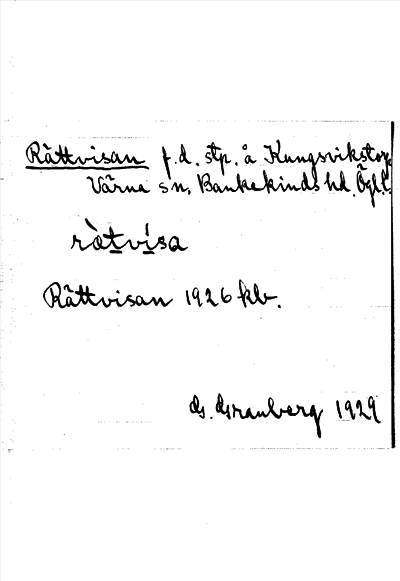 Rättvisan f.d. stp. å Kungsvikstorp
Värna sn, Bankekinds hd. Ögl.
rà̀tvísa
Rättvisan 1926 kb.
G. Granberg 1929